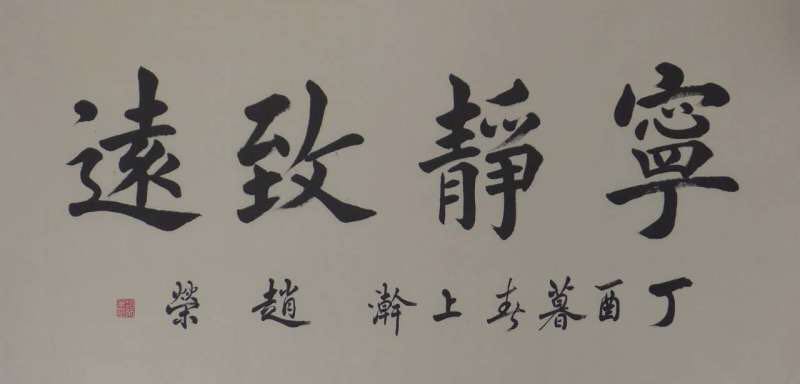 寧靜致遠
丁酉暮春上澣趙榮